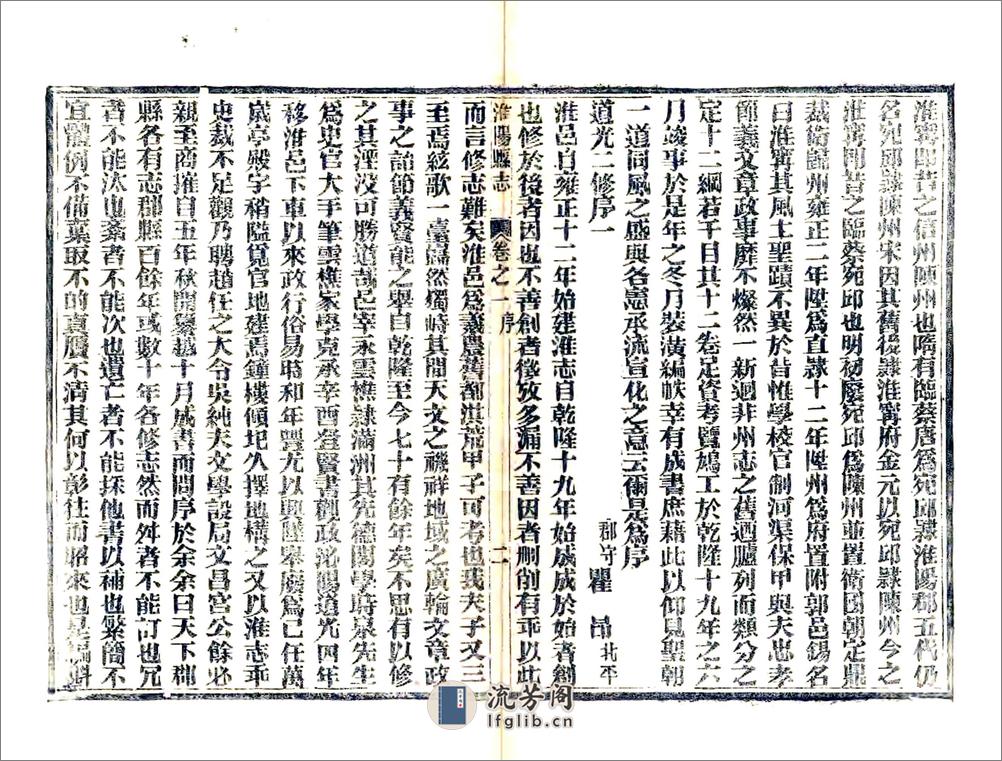 淮寧卽昔之信州陳州也隋有臨蔡唐爲宛邱隸淮陽郡五代仍
名宛邱隸陳州宋因其舊後隸淮寧府金元以宛邱隸陳州今之
淮寧卽昔之臨蔡宛邱也明初廢宛邱爲陳州並置衛國朝定鼎
裁衛歸州雍正二年陞爲直隸十二年陞州爲府置附郭邑錫名
曰淮寧其風土聖蹟不異於昔惟學校官制河渠保甲與夫忠孝
節義文章政事靡不燦然一新迥非州志之舊迺臚列而類分之
定十二綱若干目其十二卷足資考覽鳩工於乾隆十九年之六
月竣事於是年之冬月裝潢編帙幸有成書庶藉此以仰見聖朝
一道同風之盛與各憲承流宣化之意云爾是爲序
郡守瞿昂北平
道光二修序一
淮邑自雍正十二年始建淮志自乾隆十九年始成成於始者創
也修於後者因也不善創者徵攷多漏不善因者刪削有乖以此
淮陽縣志 卷之一 序 二
而言修志難矣淮邑爲羲農舊都洪荒甲子可考也我夫子又三
至焉絃歌一臺巋然獨峙其間天文之禨祥地域之廣輪文章政
事之詣節義賢能之舉自乾隆至今七十有餘年矣不思有以修
之其湮没可勝道哉邑宰永雲樵隸滿洲其先德闇學時泉先生
爲史官大手筆雲樵家學克承辛酉登賢書初政沁陽道光四年
移淮邑下車以來政行俗易時和年豐尤以興隆舉廢爲己任萬
嵗亭殿宇稍隘覓官地建焉鐘樓傾圮久擇地構之又以淮志乖
史裁不足觀乃聘趙任之大令吳純夫文學設局文昌宮公餘必
親至商搉自五年秋開纂越十月成書而問序於余余曰天下郡
縣各有志郡縣百餘年或數十年各修志然而舛者不能訂也冗
者不能汰也紊者不能次也遺亡者不能採他書以補也繁簡不
宜體例不備棄取不的真贋不清其何以彰往而昭來也是編糾
流芳阁
lfglib.cn